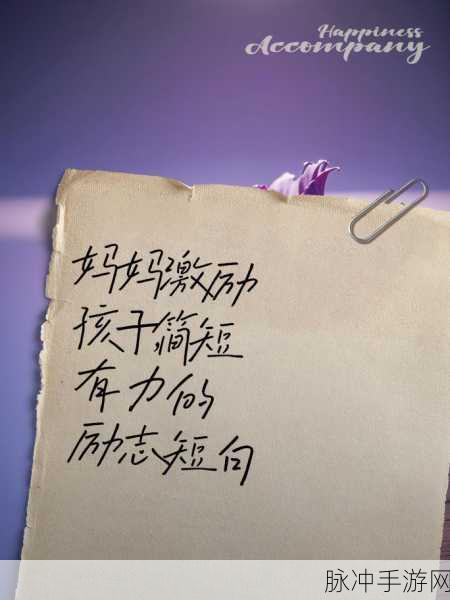 Happiness
Accompany
妈妈激励
孩子简短
有力的
励志短句
脉冲手游网